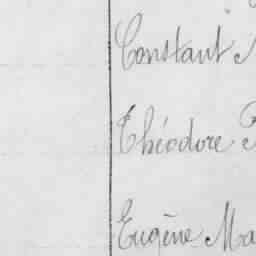 Constant
Théodore
Eugène Ma